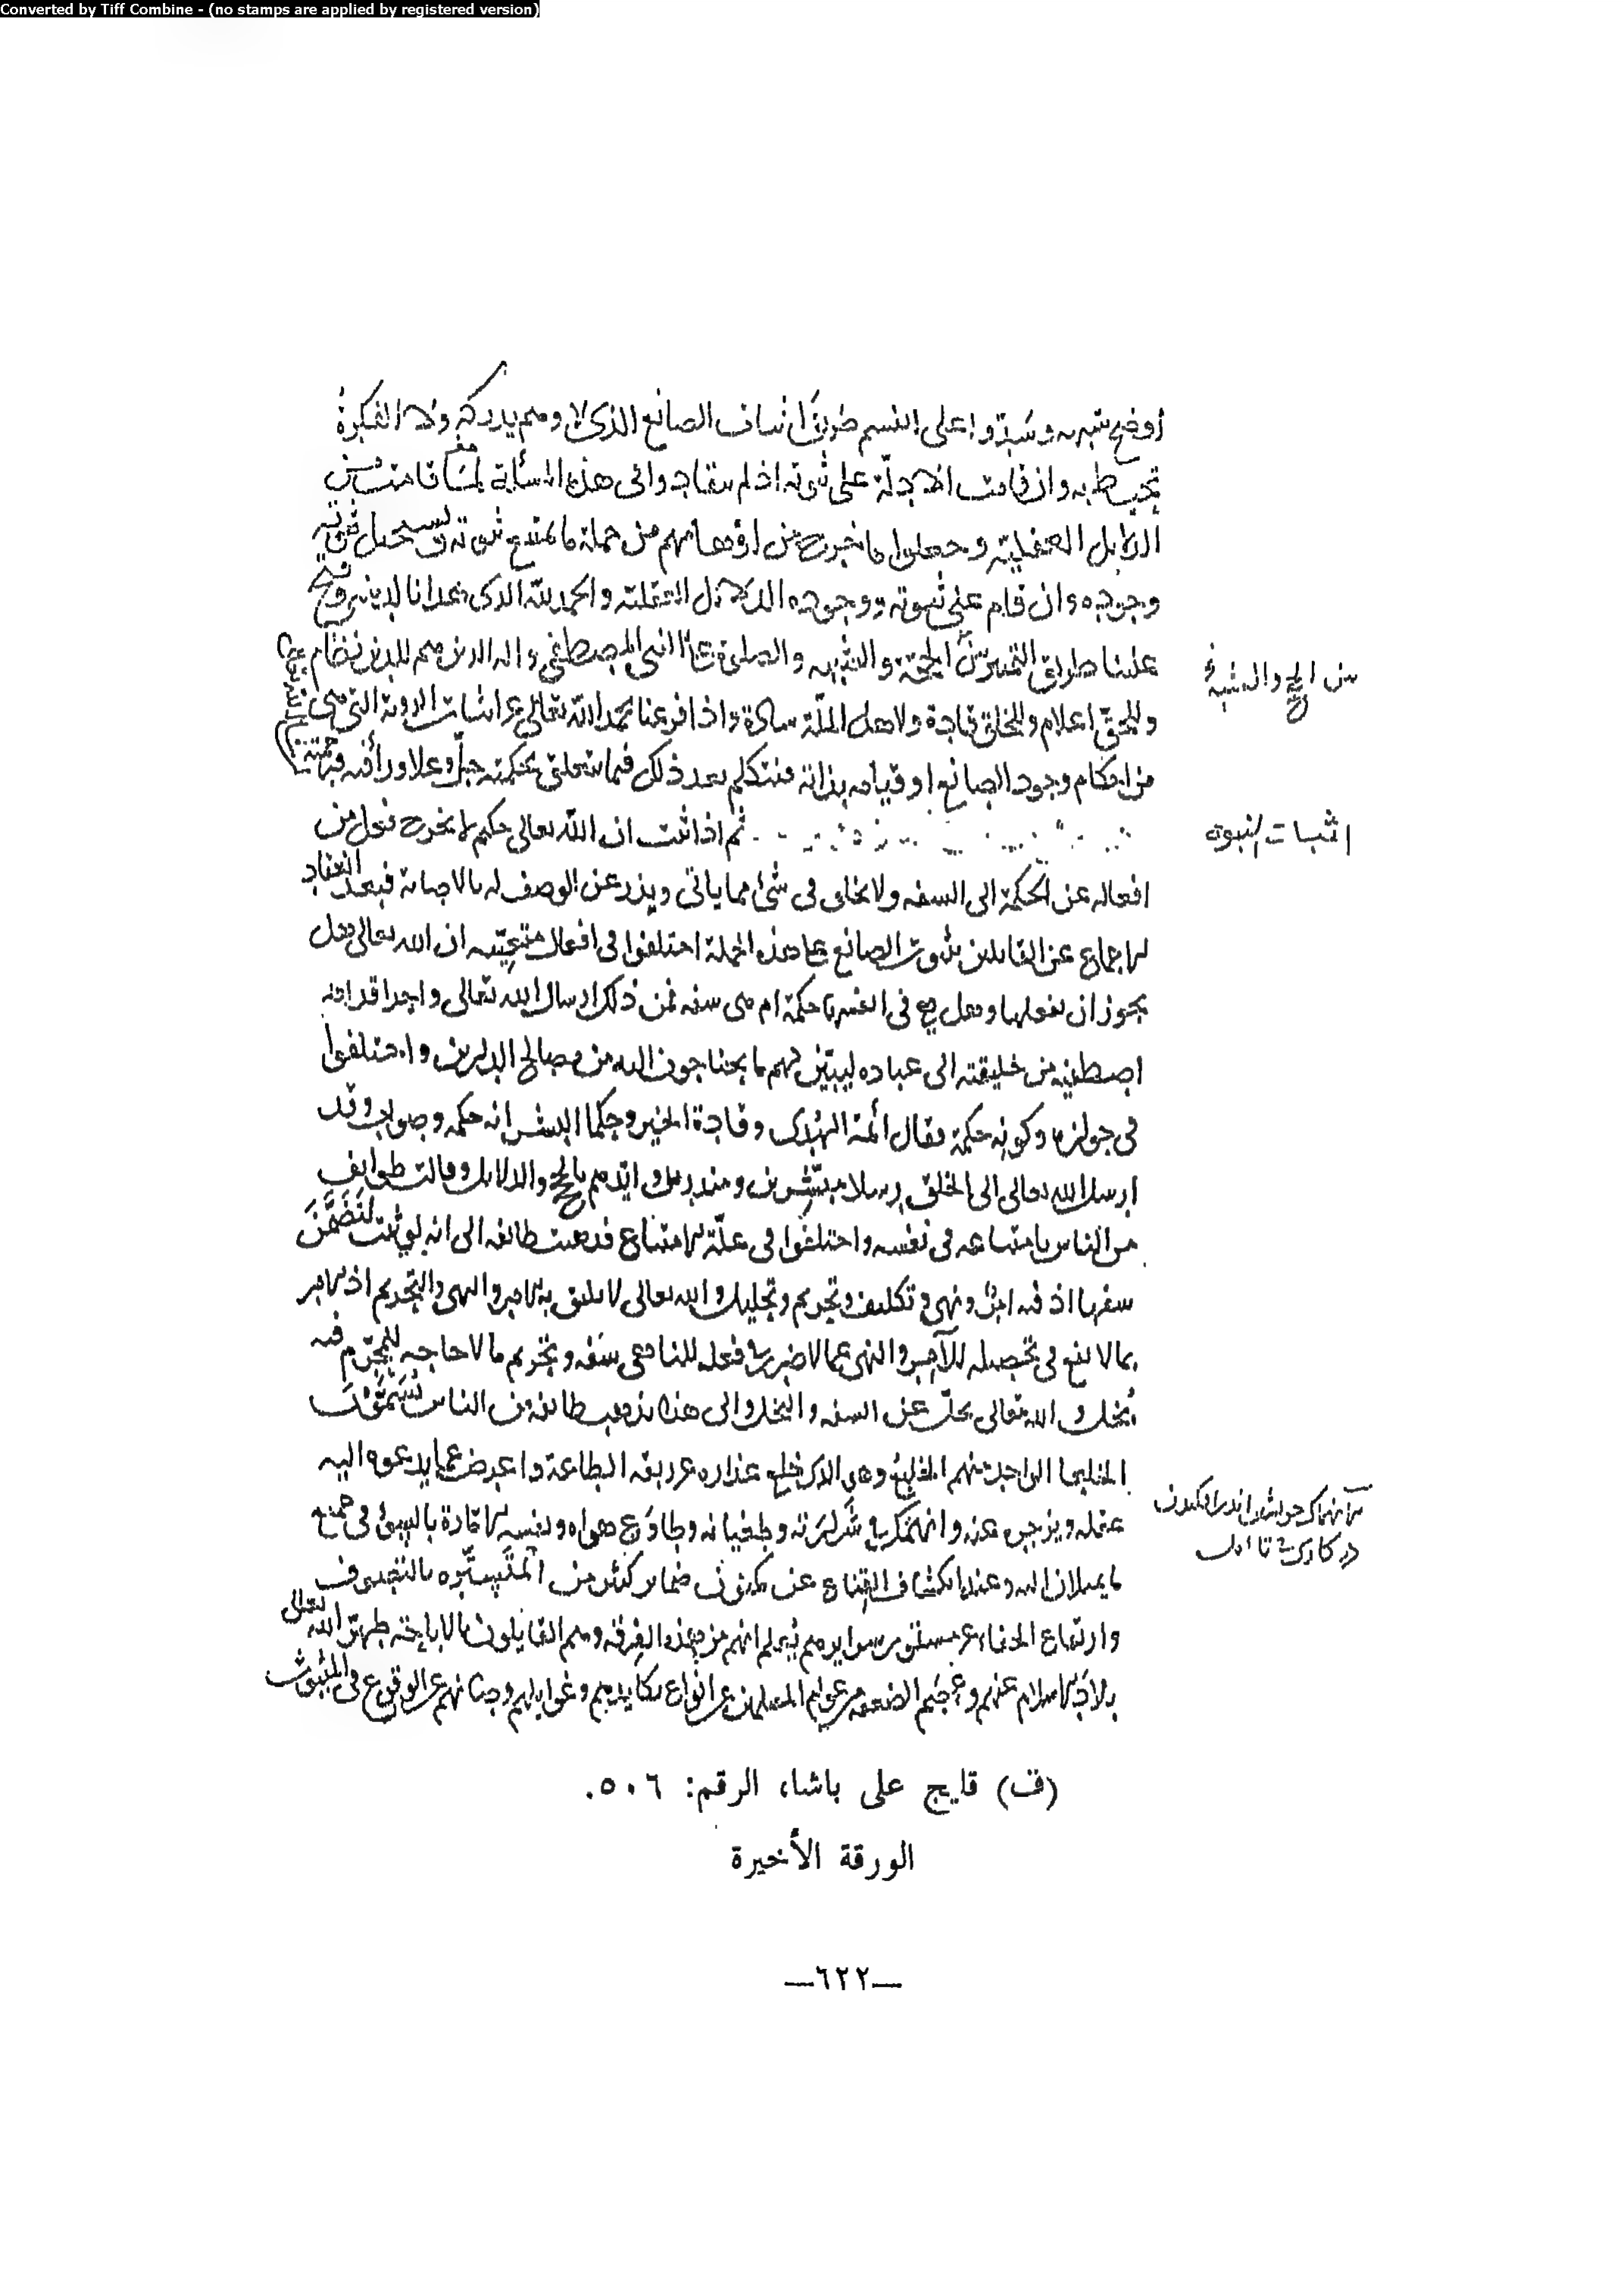 Converted by Tiff Combine - (no stamps are applied by registered version)
أوضح شبهه وسدوا على انفسهم طريق اثبات الصانع الذى لا وهم يدركه ولا الفكرة
تحيط به وان قامت الادلة على ثبوته اذ لم ينقادوا فى هذه المسألة لما قامت من
الدلايل العقلية وجعلوا ما خرج عن اوهامهم من جملة ما يمتنع ثبوته ويستحيل
وجوده وان قام على ثبوته ووجوده الدلايل العقلية والحمد لله الذى هدانا لدينه
علينا طريق التمييز بين الحجة والشبهه والصلوة على النبى المصطفى واله الذين هم للدين نظام
وللحق اعلام وللخلق قادة ولاهل الملة سادة واذا فرغنا بحمد الله تعالى عن اثبات الروية التى هى
من احكام وجود الصانع او قيامه بذاته فنتكلم بعد ذلك فيما يتعلق بحكمته جل وعلا ورأفته
بين الحجج والشبه
ثم اذا ثبت ان الله تعالى حكيم لا يخرج فعل من
اثبات النبوة
افعاله عن الحكمة الى السفه ولا يخلى فى شئ مما ياتى ويذر عن الوصف له بالاصابة فبعد انعقاد
الاجماع عن القايلين بثبوت الصانع على هذه الجملة اختلفوا فى افعال متعينة ان الله تعالى هل
يجوز ان يفعلها وهل هى فى انفسها حكمة ام هى سفه فمن ذلك ارسال الله تعالى واحدا قد
اصطفيه من خليقته الى عباده ليبين لهم ما يحتاجون اليه من مصالح الدارين واختلفوا
فى جوازه وكونه حكمة فقال أئمة الهدى وقادة الخير وحكما البشر انه حكمه وصواب وقد
ارسل الله تعالى الى الخلق رسلا مبشرين ومنذرين وايدهم بالحجج والدلايل وقالت طوايف
من الناس بامتناعه فى نفسه واختلفوا فى علة الامتناع فذهبت طايفه الى انه لو ثبت لتضمن
سفها اذ فيه امر ونهى وتكليف وتحريم وتحليل والله تعالى لا يليق به الامر والنهى والتحريم اذ الامر
بما لا نفع فى تحصيله للآمر والنهى عما لا ضرر فى فعله للناهى سفه وتحريم ما لا حاجه للمحرم فيه
بخل والله تعالى يجل عن السفه والبخل والى هذا يذهب طايفه من الناس يسمون
الخلعا الواحد منهم الخليع وهو الذى خلع عذاره عن ربقه الطاعة واعرض عما يدعوه اليه
عقله ويزجره عنه وانهمك فى شرارته وطغيانه وطاوع هواه ونفسه الامارة بالسوء فى جميع
ما يميلان اليه وعند انكشاف القناع عن مكنون ضماير كثير من المتسترة بالتصوف
وارتفاع الخفاء عن مستور سرايرهم يعلم انهم من هذه الفرقه وهم القايلون بالاباحة طهر الله تعالى
بلاد الاسلام عنهم وعصم الضعفه من عوام المسلمين عن انواع مكايدهم وغوايلهم وصانهم عن الوقوع فى
(ف) قليج على باشا، الرقم: ٥٠٦.
الورقة الأخيرة
—٦٢٢—